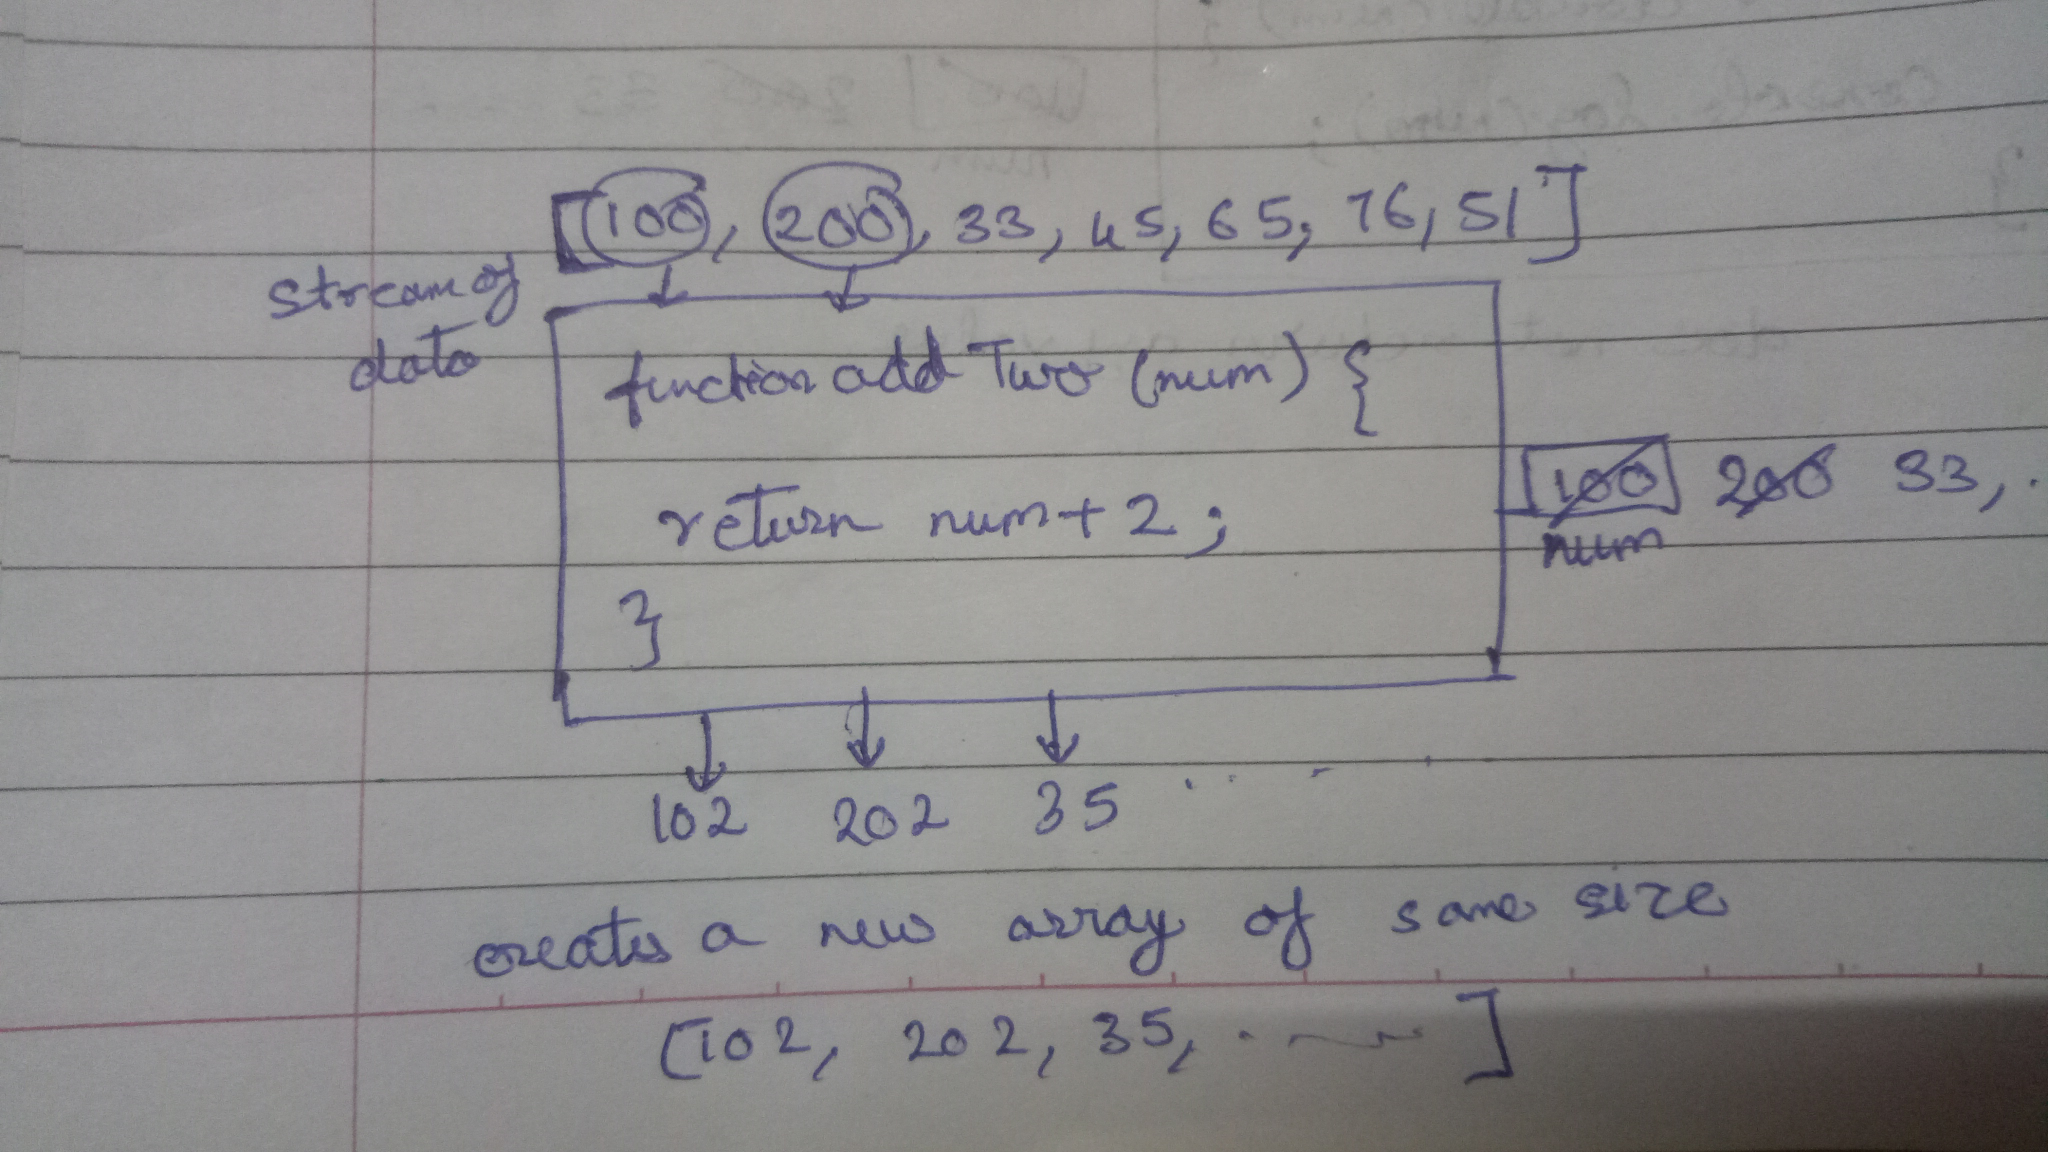 [100, 200, 33, 45, 65, 76, 51]
stream of
data
function add Two (num) {
return num + 2;
}
100 200 33, .
num
102 202 35 . . . - .
creates a new array of same size
[102, 202, 35, . ~~ ]